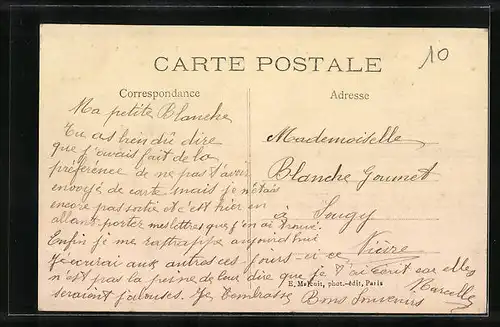 10
CARTE POSTALE
Correspondance
Adresse
Ma petite Blanche
Tu as bien dû dire
que j'avais fait de la
préférence de ne pas t'avoir
envoyé de carte mais je n'étais
encore pas sortie et c'est hier en
allant porter mes lettres que j'en ai trouvé.
Enfin je me rattrappe aujourd'hui
J'écrirai aux autres ces jours-ci ce
n'est pas la peine de leur dire que je t'ai écrit car elles
seraient jalouses. Je t'embrasse Bons Souvenirs
Marcelle
Mademoiselle
Blanche
à Sougy
Nièvre
E. Mazouit, phot.-édit, Paris